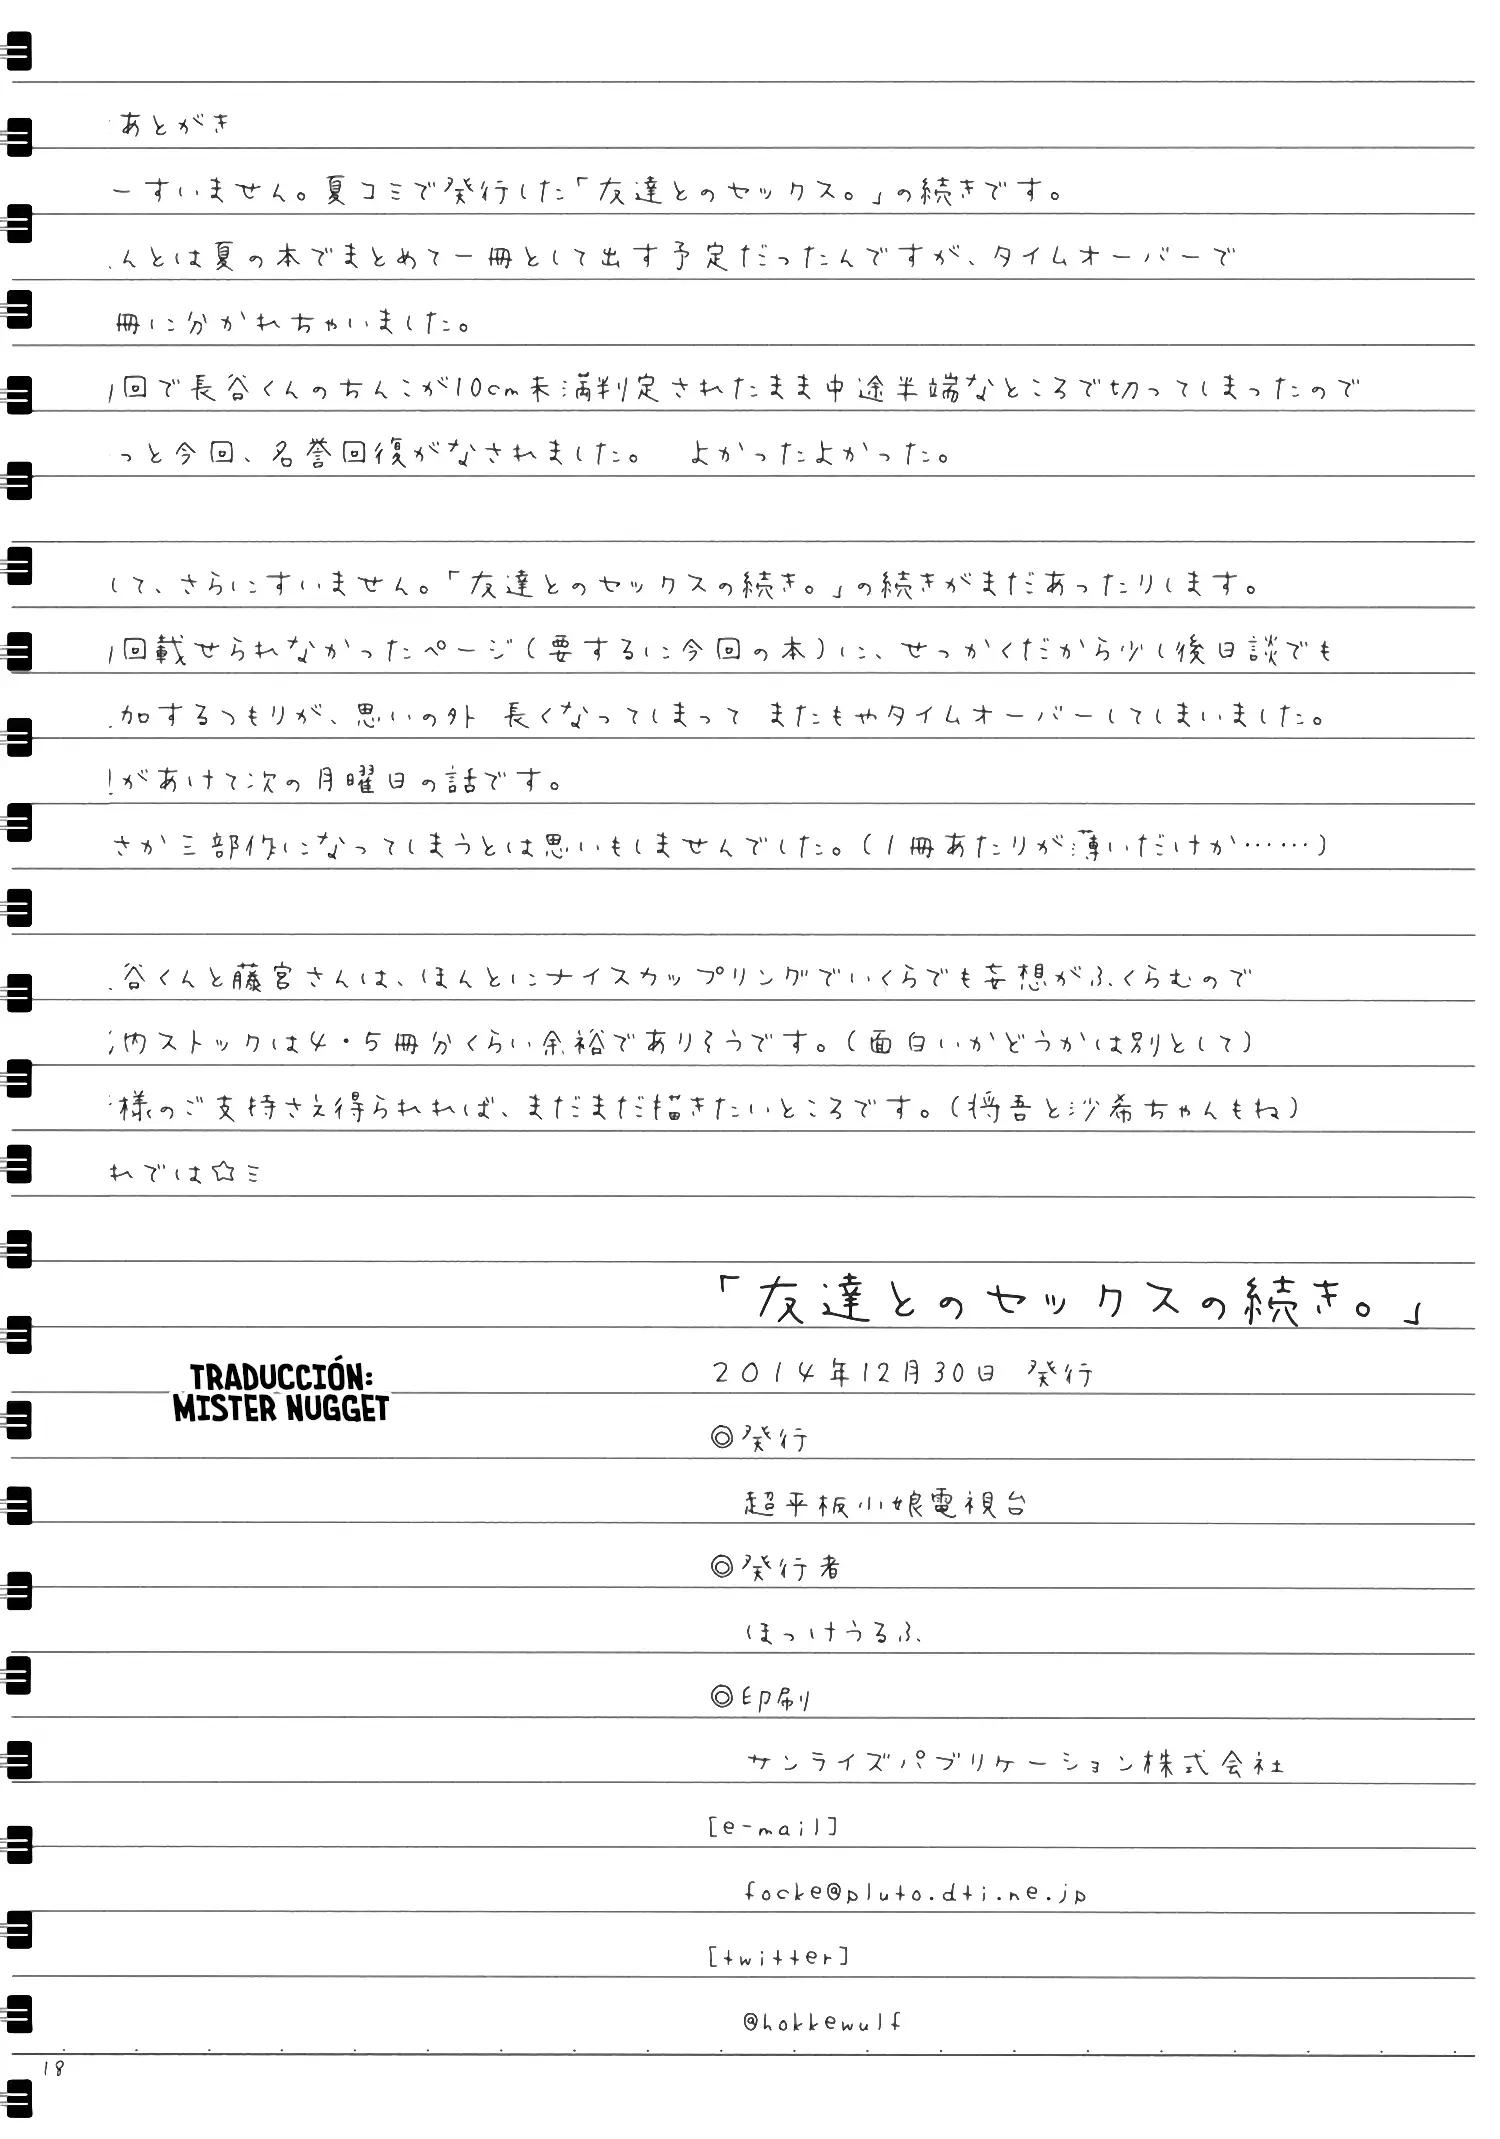 あとがき
ーすいません。夏コミで発行した「友達とのセックス。」の続きです。
んとは夏の本でまとめて一冊として出す予定だったんですが、タイムオーバーで
冊に分かれちゃいました。
回で長谷くんのちんこが10cm未満判定されたまま中途半端なところで切ってしまったので
っと今回、名誉回復がなされました。 よかったよかった。
して、さらにすいません。「友達とのセックスの続き。」の続きがまだあったりします。
回載せられなかったページ(要するに今回の本)に、せっかくだから少し後日談でも
加するつもりが、思いの外 長くなってしまって またもやタイムオーバーしてしまいました。
があけて次の月曜日の話です。
さか三部作になってしまうとは思いもしませんでした。(1冊あたりが薄いだけか……)
谷くんと藤宮さんは、ほんとにナイスカップリングでいくらでも妄想がふくらむので
内ストックは4・5冊分くらい余裕でありそうです。(面白いかどうかは別として)
様のご支持さえ得られれば、まだまだ描きたいところです。(将吾と沙希ちゃんもね)
れでは☆ミ
「友達とのセックスの続き。」
TRADUCCIÓN:
MISTER NUGGET
2014年12月30日 発行
◎発行
超平板小娘電視台
◎発行者
ほっけうるふ
◎印刷
サンライズパブリケーション株式会社
[e-mail]
focke@pluto.dti.ne.jp
[twitter]
@hokkewulf
18